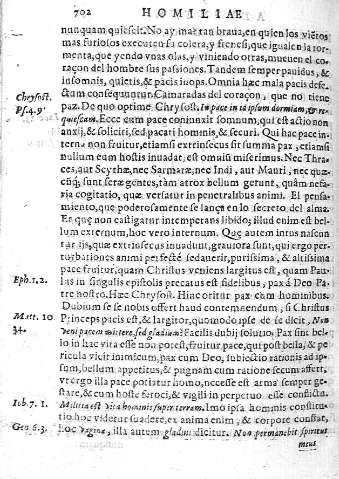 702 HOMILIAE
nunquam quiescit. No ay mar tan braua, en quien los viẽtos
mas furiosos executen sa colera, y frenesi, que iguale a la tor-
menta, que yendo vnas olas, y viniendo otras, mueuen el co-
raçon del hombre sus passiones. Tandem semper pauidus, &
insomnis, quietis, & pacis inops. Omnia hæc mala pacis defe-
Chrysost. ctum consequuntur. Camaradas del coraçon, que no tiene
Ps. 4. 9. paz. De quo optime Chrysost. In pace in id ipsum dormiam, & re-
quiescam. Ecce cum pace coniunxit somnum, qui est actio non
anxij, & soliciti, sed pacati hominis, & securi. Qui hac pace inter-
na non fruitur, etiamsi extrinsecus sit summa pax, etiamsi
nullum eum hostis inuadat, est omniũ miserrimus. Nec Thra-
ces, aut Scythæ, nec Sarmatæ, nec Indi, aut Mauri, nec quæ-
cũq; sunt feræ gentes, tam atrox bellum gerunt, quàm nefa-
ria cogitatio, quæ versatur in penetralibus animi. El pensa-
miento, que poderosamente se lança en lo secreto del alma.
Et quę non castigatur intemperans libido; illud enim est bel-
lum externum, hoc vero internum. Quę autem intus nascun-
tur ijs, quæ extrinsecus inuadunt, grauiora sunt, qui ergo per-
turbationes animi perfectè sedauerit, purissima, & altissima
pace fruitur, quam Christus veniens largitus est, quam Pau-
Eph. 1. 2. lus in singulis epistolis precatus est fidelibus, pax á Deo Pa-
tre nostro. Hæc Chrysost. Hinc oritur pax cum hominibus.
Dubium se se nobis offert haud contemnendum, si Christus
Matt. 10. Princeps pacis est, & largitor, quomodo ipse de se dicit, No
34. veni pacem mittere, sed gladium? Facilis dubij solutio. Pax sine bel-
lo in hac vita esse non potest, fruitur pace, qui post bella, & pe-
ricula vicit inimicum, pax cum Deo, subiectio rationis ad ip-
sum, bellum appetitus, & pugnam cum ratione secum affert,
vt ergo illa pace potiatur homo, necesse est arma semper ge-
stare, & cum hoste feroci, & vigili in perpetuo esse conflictu.
Iob. 7. 1. Militia est vita hominis super terram. Imò ipsa hominis constitu-
tio hoc videtur suadere, ex anima enim, & corpore constat,
Gen. 6. 3. hoc vagina, illa autem gladius dicitur. Non permanebit spiritus
meus